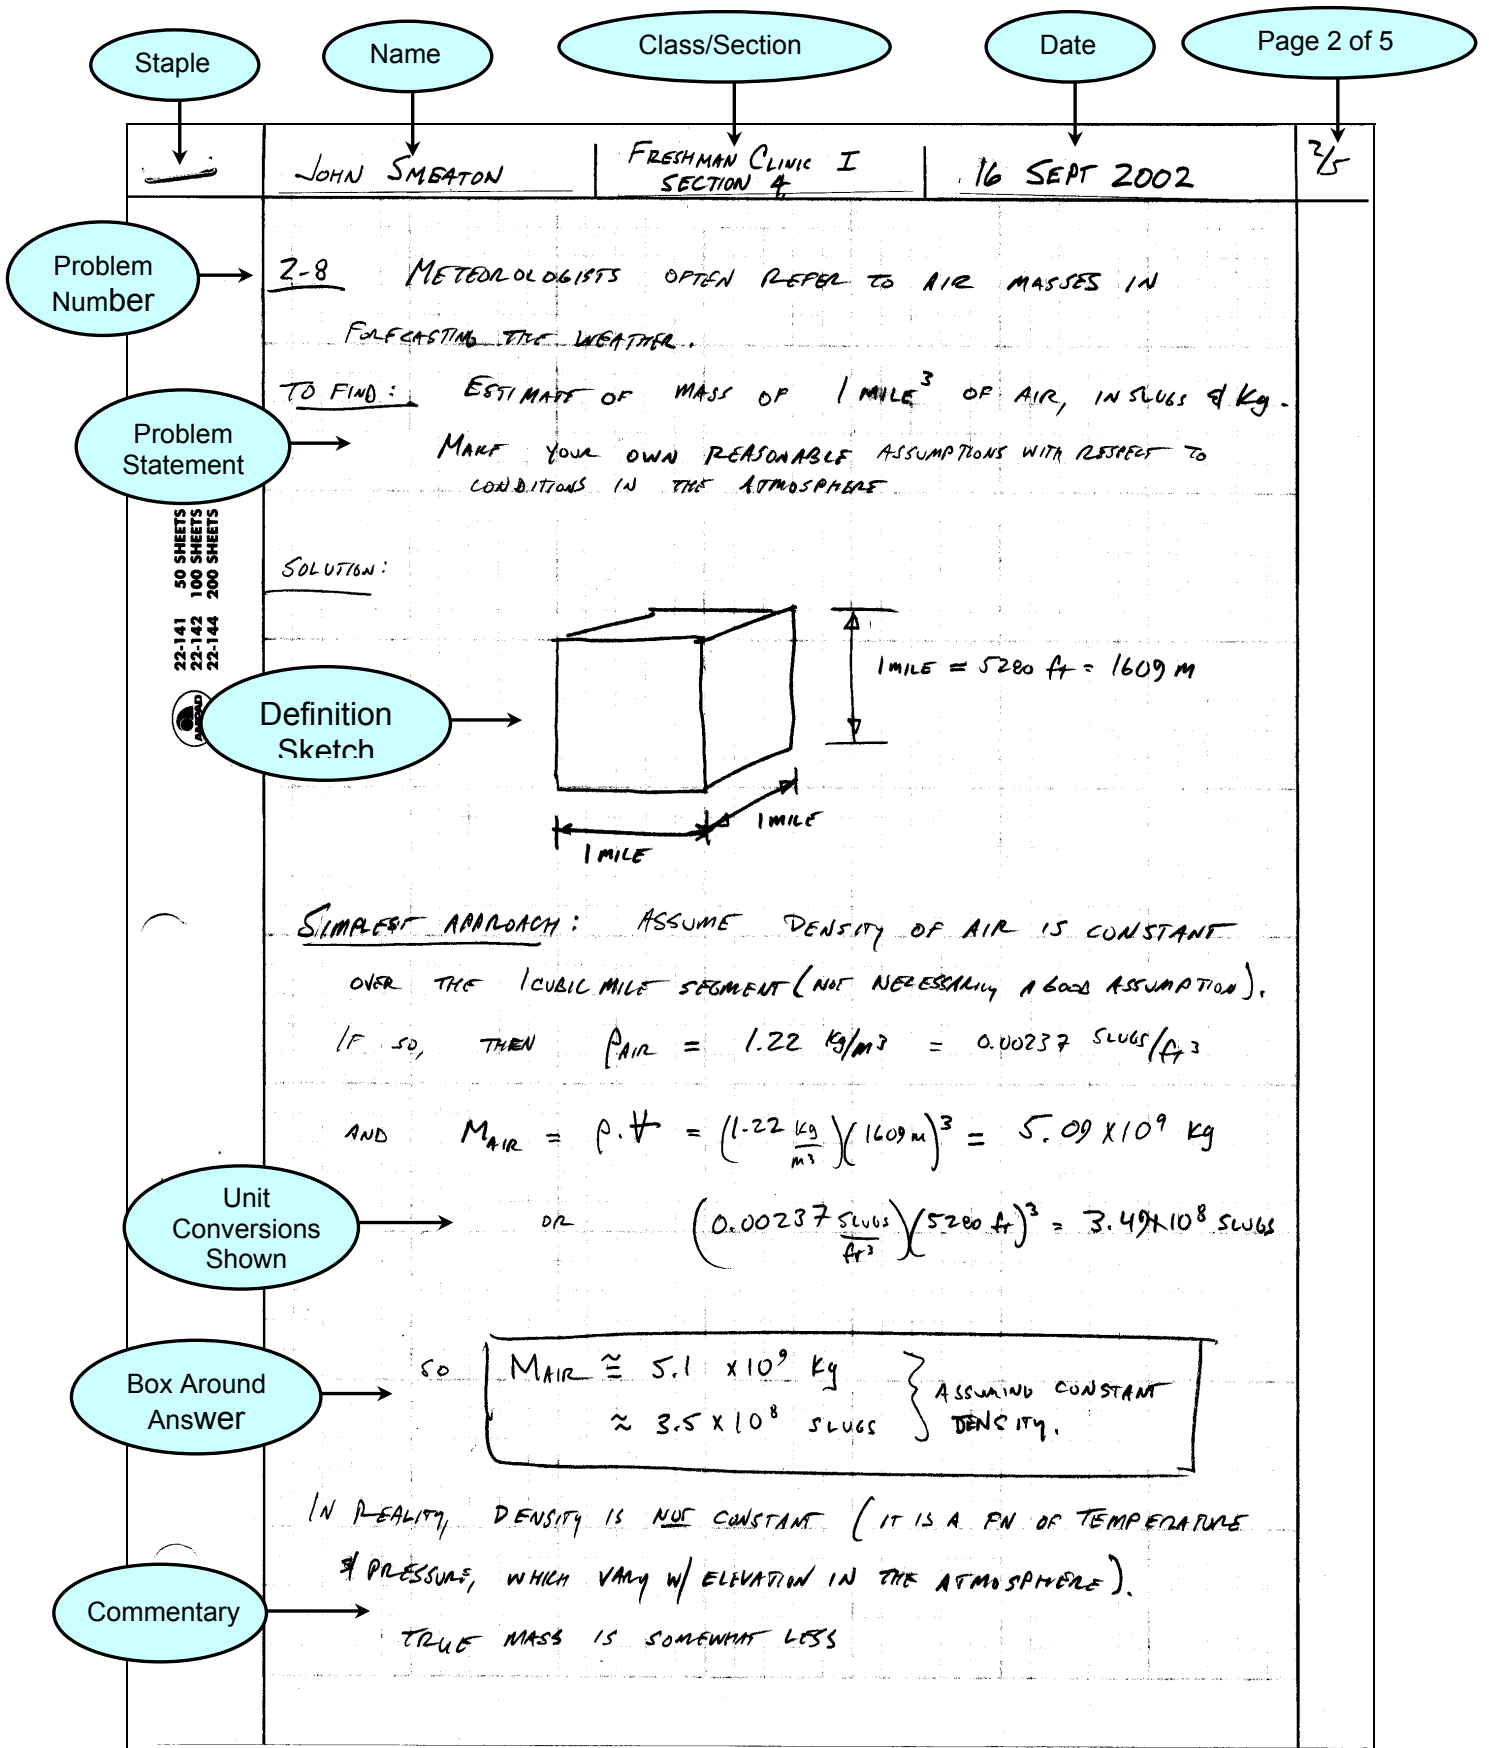 Staple
Name
Class/Section
Date
Page 2 of 5
JOHN SMEATON
FRESHMAN CLINIC I
SECTION 4
16 SEPT 2002
2/5
Problem
Number
2-8 METEOROLOGISTS OFTEN REFER TO AIR MASSES IN
FORECASTING THE WEATHER.
TO FIND: ESTIMATE OF MASS OF 1 MILE³ OF AIR, IN SLUGS & Kg.
Problem
Statement
MAKE YOUR OWN REASONABLE ASSUMPTIONS WITH RESPECT TO
CONDITIONS IN THE ATMOSPHERE
22-141 50 SHEETS
22-142 100 SHEETS
22-144 200 SHEETS
AMPAD
SOLUTION:
1 MILE = 5280 ft = 1609 m
Definition
Sketch
1 MILE
1 MILE
SIMPLEST APPROACH: ASSUME DENSITY OF AIR IS CONSTANT
OVER THE 1 CUBIC MILE SEGMENT (NOT NECESSARILY A GOOD ASSUMPTION).
IF SO, THEN ρAIR = 1.22 Kg/m³ = 0.00237 SLUGS/ft³
AND MAIR = ρ.V = (1.22 kg/m³)(1609 m)³ = 5.09 X 10⁹ kg
Unit
Conversions
Shown
OR (0.00237 SLUGS/ft³)(5280 ft)³ = 3.49X10⁸ SLUGS
Box Around
Answer
SO MAIR ≅ 5.1 X10⁹ Kg
≈ 3.5 X 10⁸ SLUGS } ASSUMING CONSTANT
DENSITY.
IN REALITY, DENSITY IS NOT CONSTANT (IT IS A FN OF TEMPERATURE
& PRESSURE, WHICH VARY W/ ELEVATION IN THE ATMOSPHERE).
Commentary
TRUE MASS IS SOMEWHAT LESS